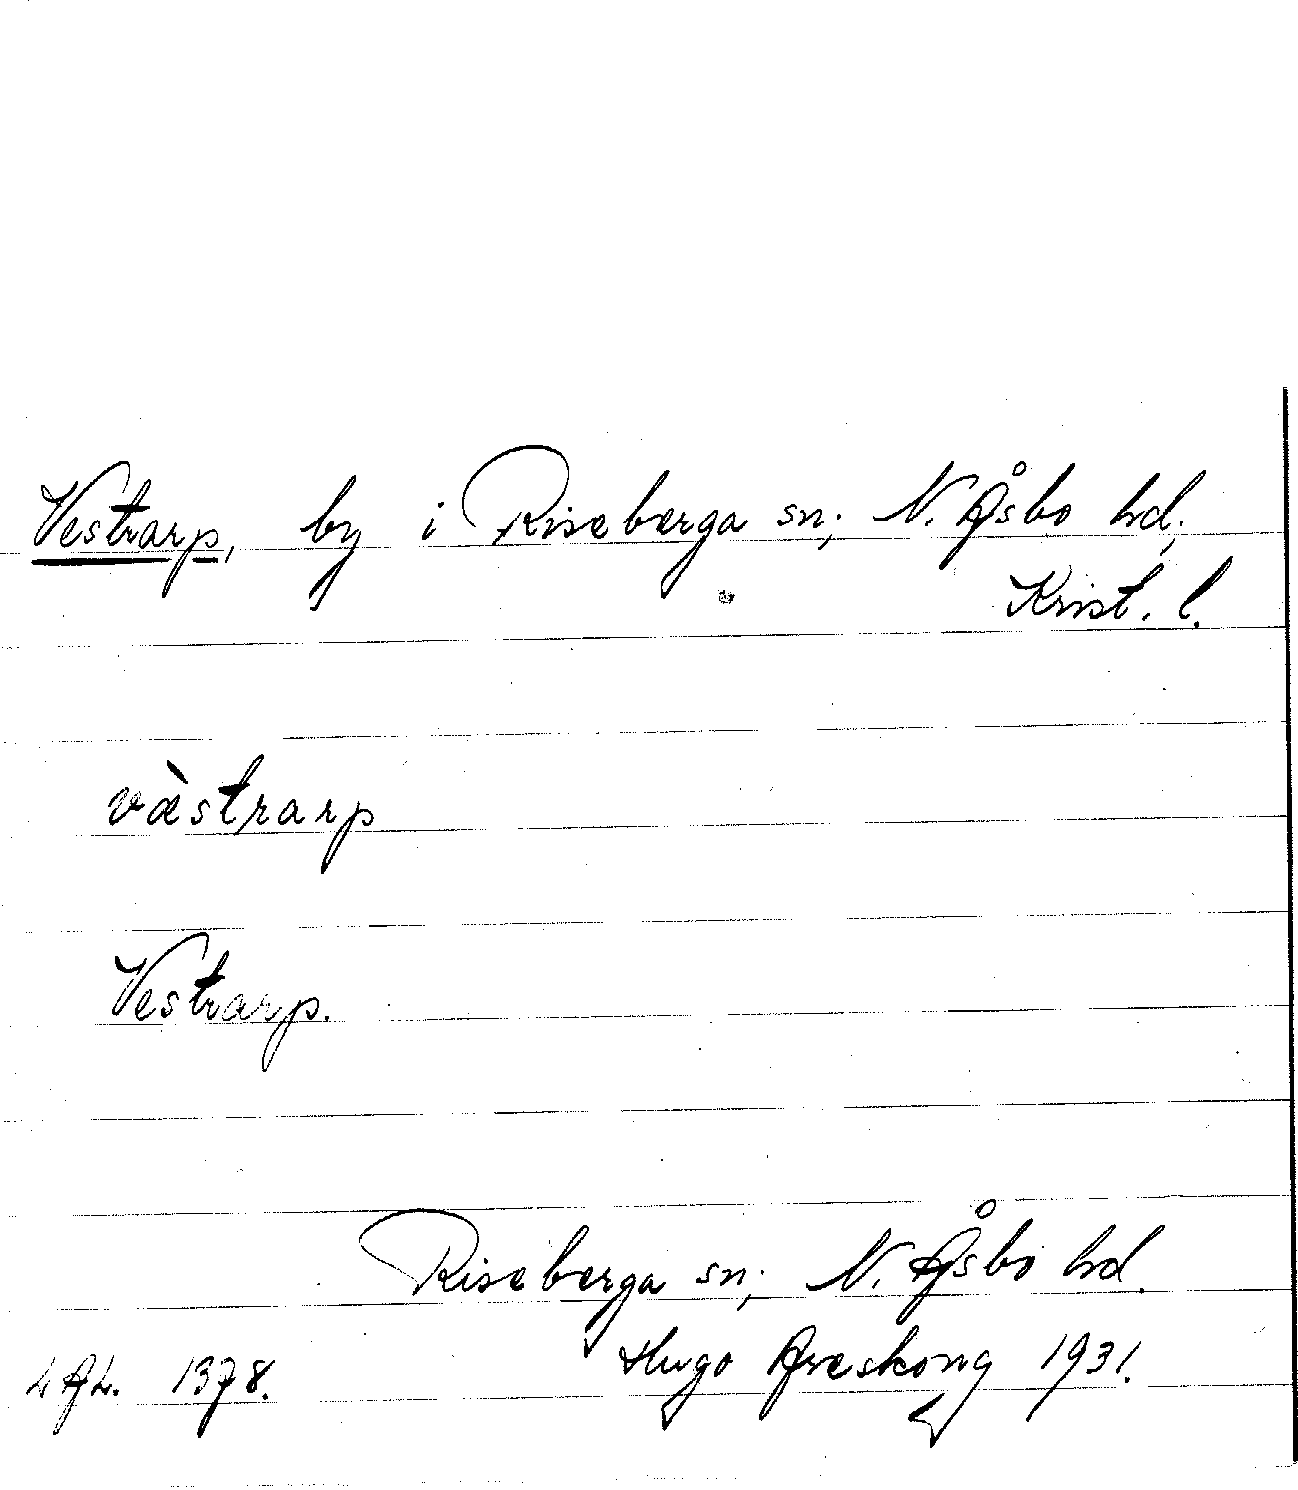 Vestrarp, by i Riseberga sn; N. Åsbo hd;
Krist. l.
væ̀strarp
Vestrarp.
Riseberga sn; N. Åsbo hd.
Hugo Areskoug 1931.
LAL. 1378.